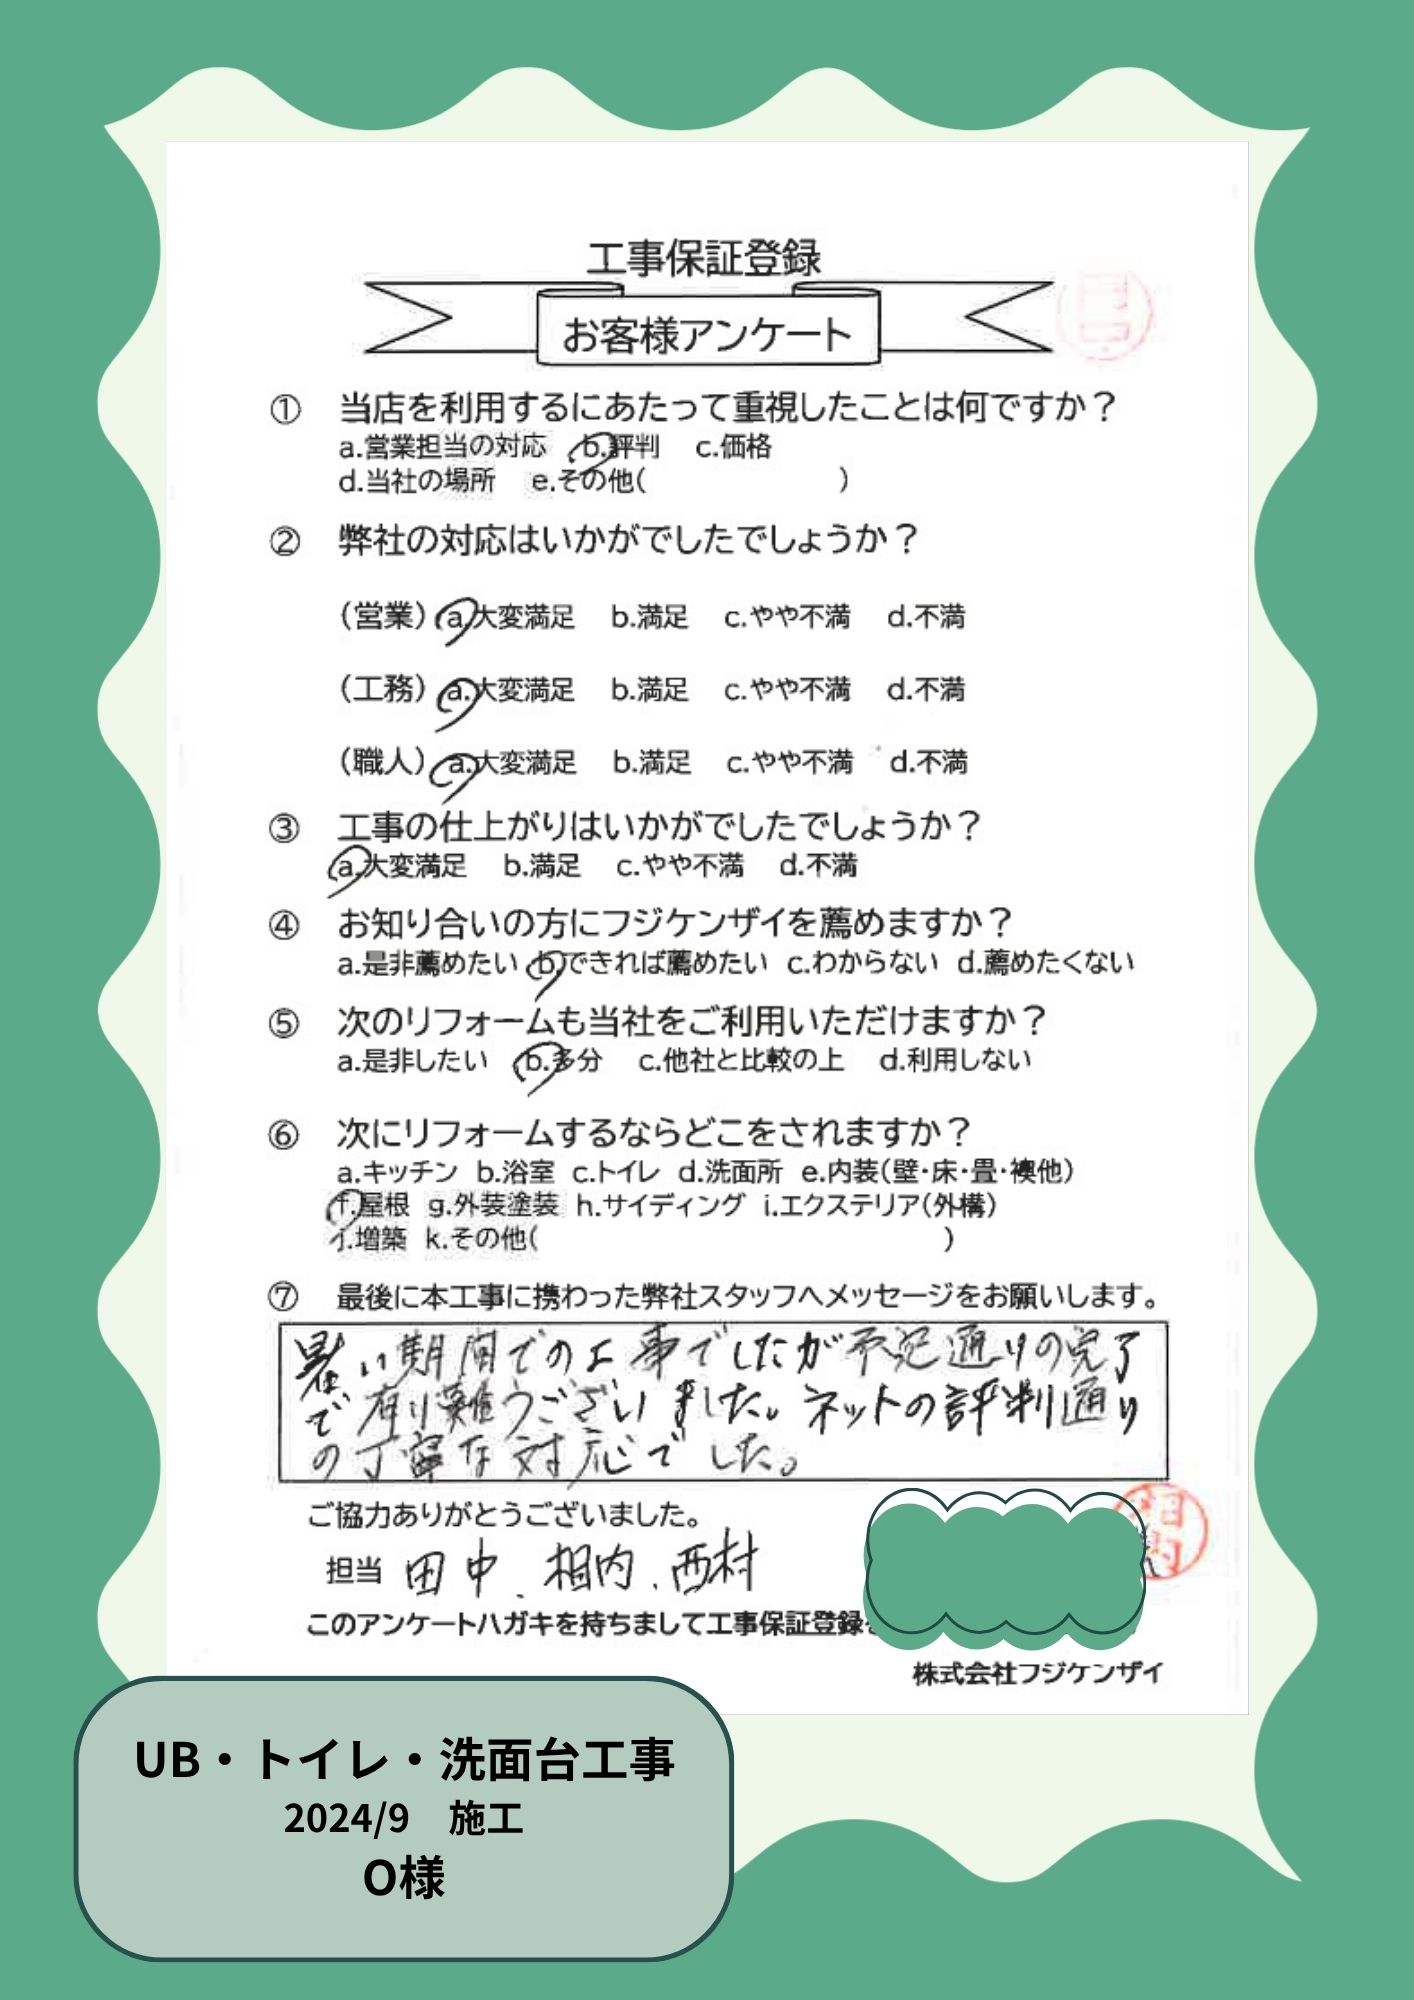 工事保証登録
お客様アンケート
① 当店を利用するにあたって重視したことは何ですか？
a.営業担当の対応 b.評判 c.価格
d.当社の場所 e.その他( )
② 弊社の対応はいかがでしたでしょうか？
（営業） a.大変満足 b.満足 c.やや不満 d.不満
（工務） a.大変満足 b.満足 c.やや不満 d.不満
（職人） a.大変満足 b.満足 c.やや不満 d.不満
③ 工事の仕上がりはいかがでしたでしょうか？
a.大変満足 b.満足 c.やや不満 d.不満
④ お知り合いの方にフジケンザイを薦めますか？
a.是非薦めたい b.できれば薦めたい c.わからない d.薦めたくない
⑤ 次のリフォームも当社をご利用いただけますか？
a.是非したい b.多分 c.他社と比較の上 d.利用しない
⑥ 次にリフォームするならどこをされますか？
a.キッチン b.浴室 c.トイレ d.洗面所 e.内装（壁・床・畳・襖他）
f.屋根 g.外装塗装 h.サイディング i.エクステリア（外構）
j.増築 k.その他( )
⑦ 最後に本工事に携わった弊社スタッフへメッセージをお願いします。
暑い期間での工事でしたが予定通りの完了
で有り難うございました。ネットの評判通り
の丁寧な対応でした。
ご協力ありがとうございました。
担当 田中、相内、西村
このアンケートハガキを持ちまして工事保証登録
株式会社フジケンザイ
UB・トイレ・洗面台工事
2024/9 施工
O様